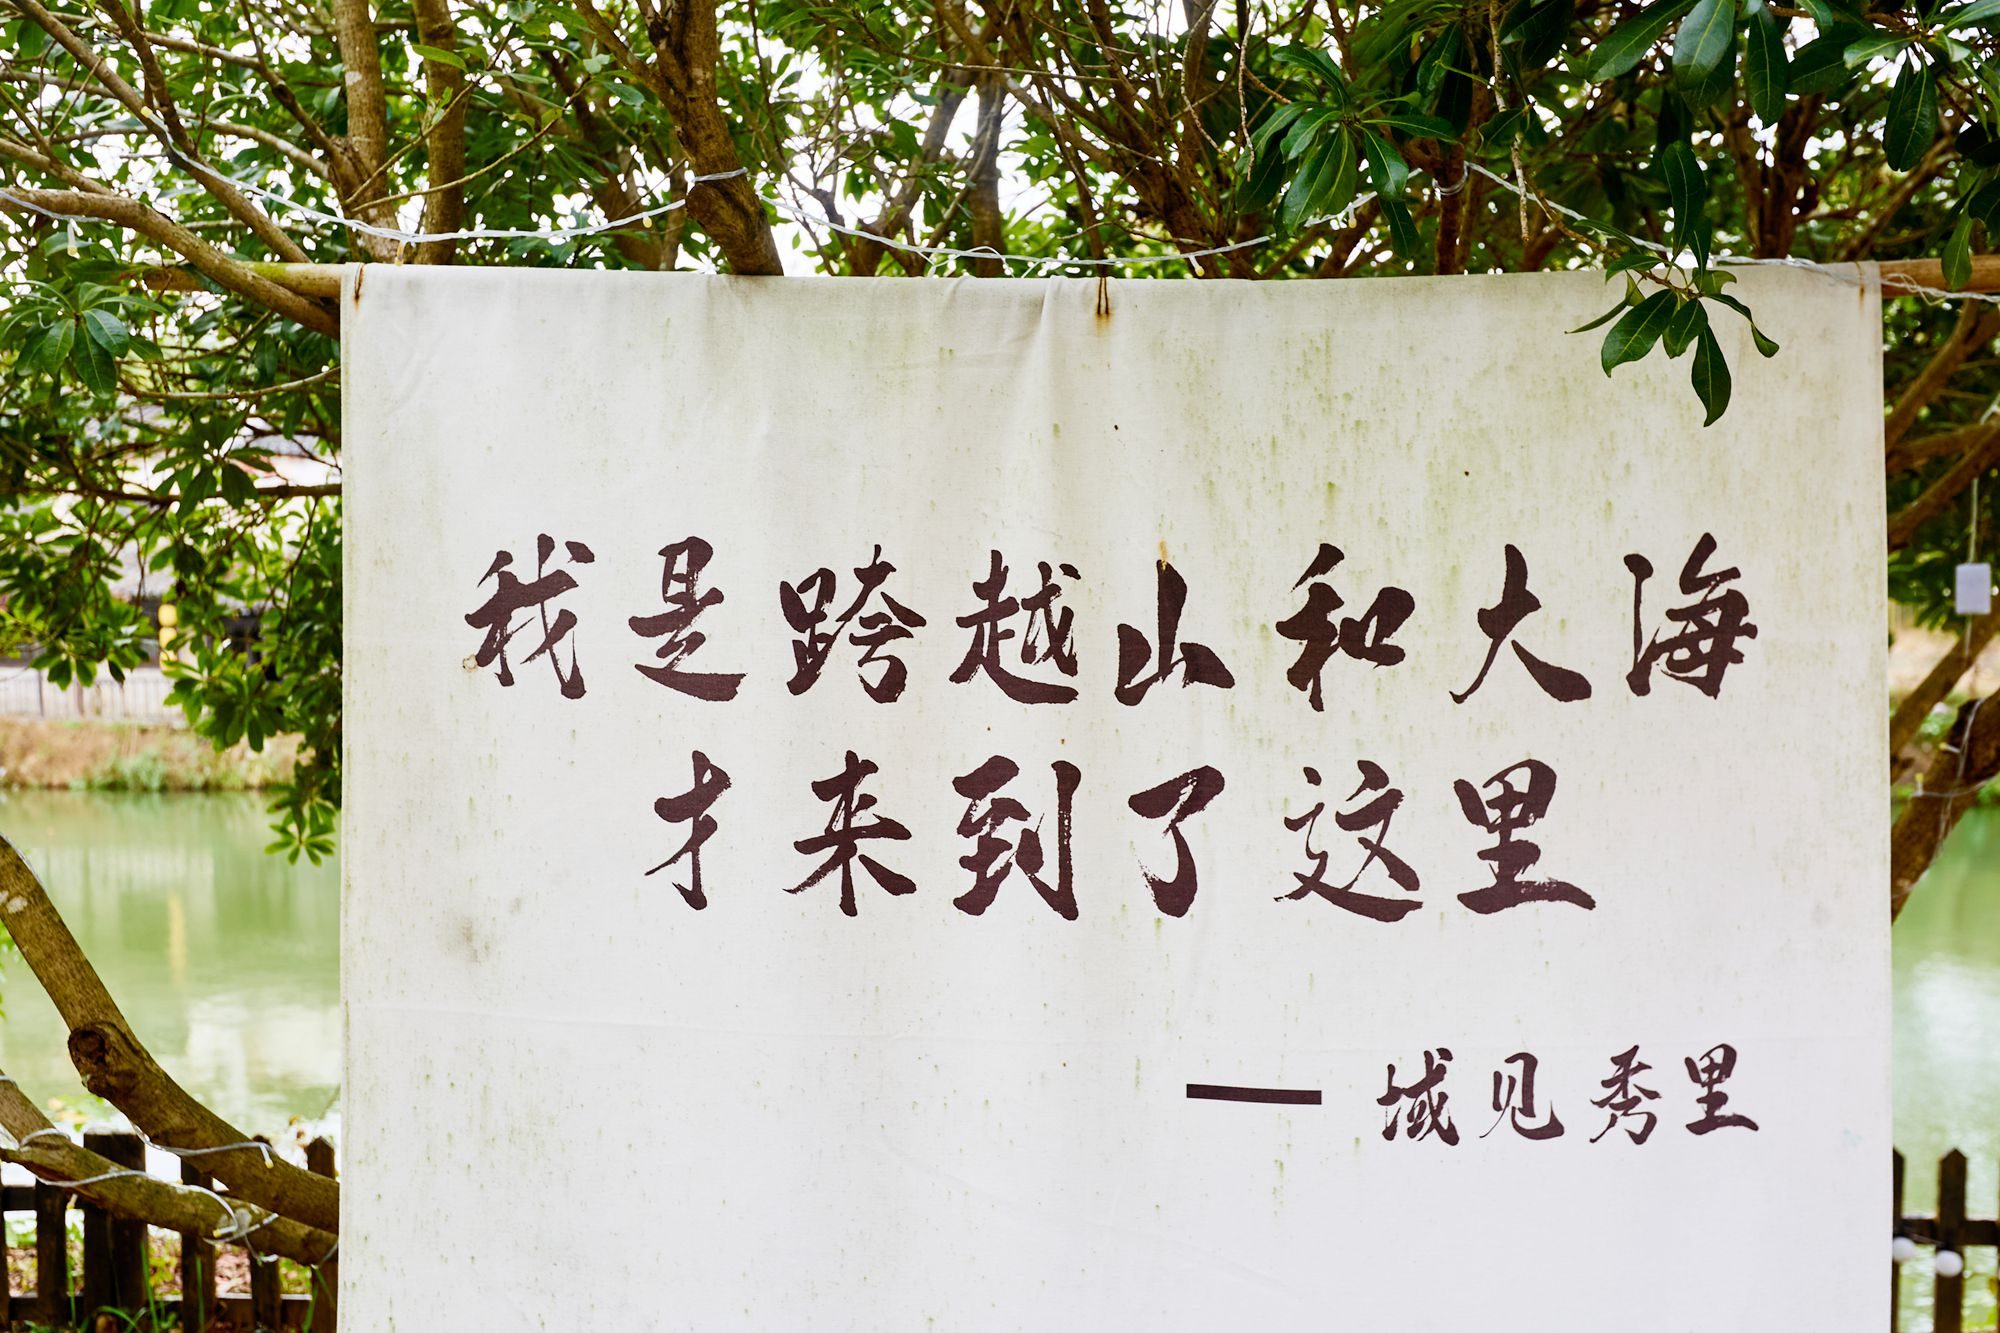 我是跨越山和大海
才来到了这里
— 域见秀里